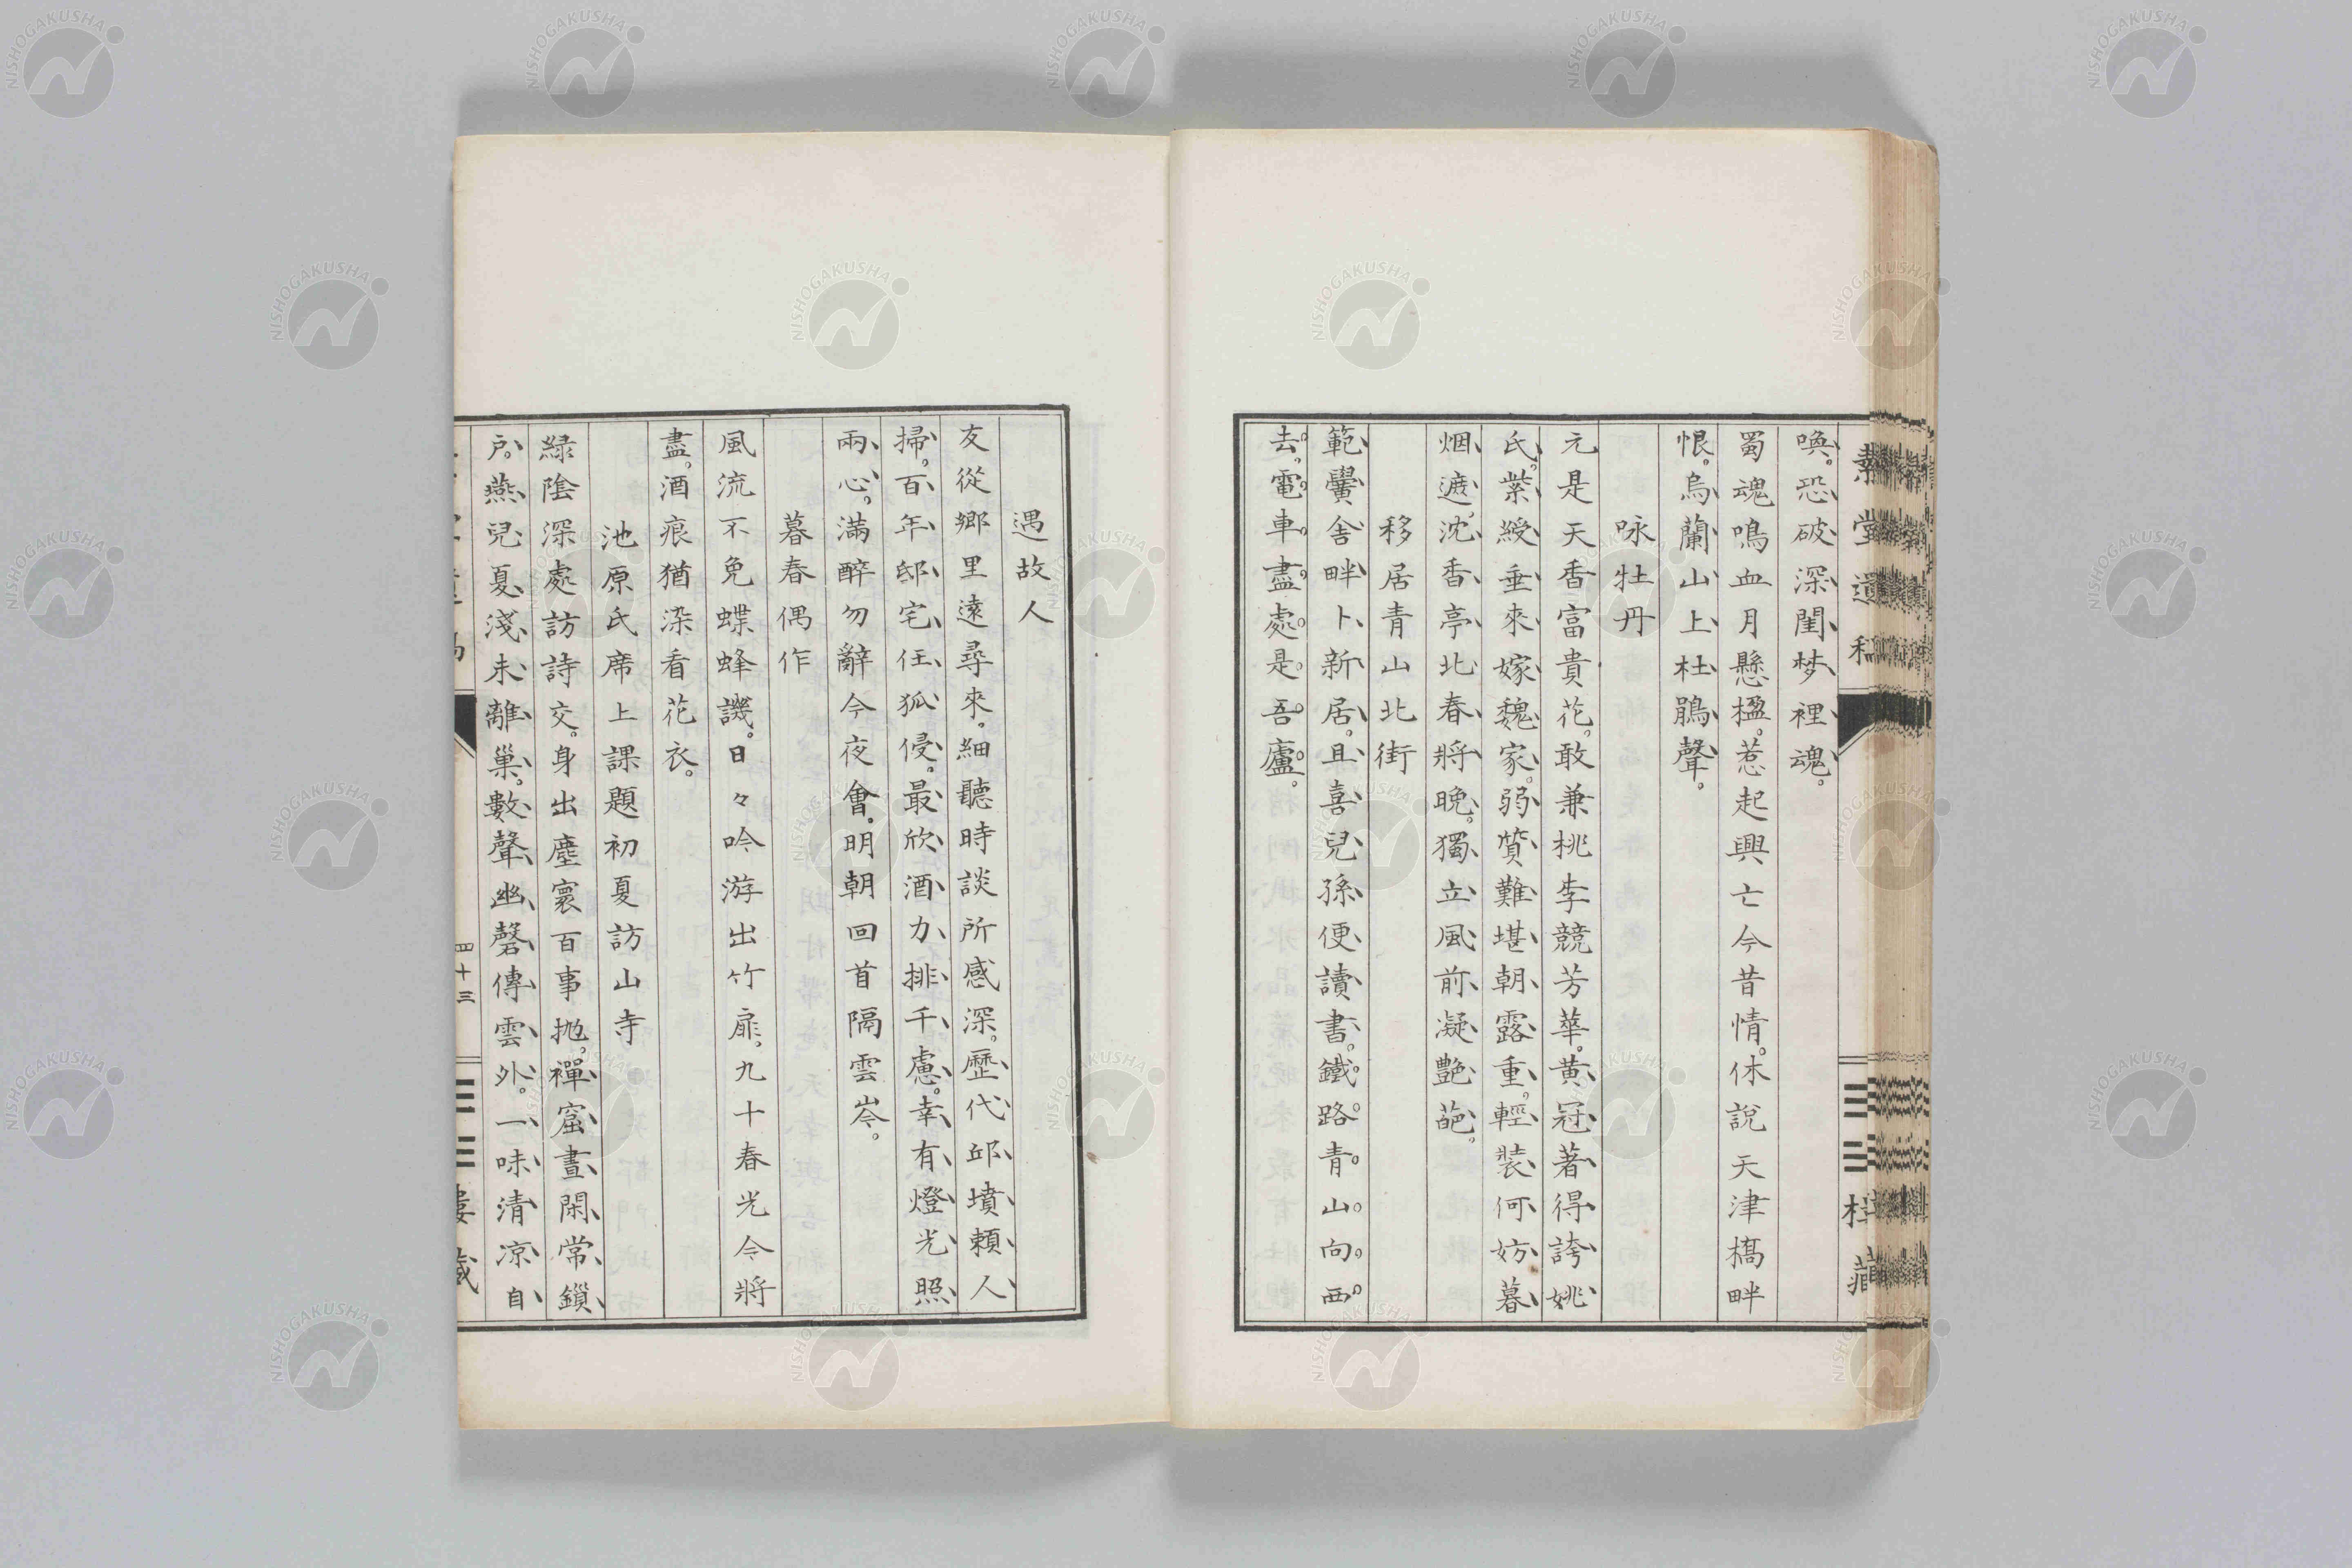 喚。恐破深閨梦裡魂。
蜀魂鳴血月懸楹。惹起興亡今昔情。休說天津橋畔
恨。烏蘭山上杜鵑聲。
咏牡丹
元是天香富貴花。敢兼桃李競芳華。黄冠著得誇姚
氏。紫綬垂來嫁魏家。弱質難堪朝露重。輕装何妨暮
烟遮。沈香亭北春將晚。獨立風前凝艷葩。
移居青山北街
範黌舍畔卜新居。且喜兒孫便讀書。鐵路青山向西
去。電車盡處是吾廬。
堂遺稿
藏
遇故人
友從鄉里遠尋來。細聽時談所感深。歷代邱墳賴人
掃。百年邸宅任狐侵。最欣酒力排千慮。幸有燈光照
兩心。滿醉勿辭今夜會。明朝回首隔雲岑。
暮春偶作
風流不免蝶蜂譏。日々吟游出竹扉。九十春光今將
盡。酒痕猶染看花衣。
池原氏席上課題初夏訪山寺
緑陰深處訪詩交。身出塵寰百事拋。禪窟晝閑常鎖
戶。燕兒夏淺未離巢。數聲幽磬傳雲外。一味清凉自
四十三
NISHOGAKUSHA